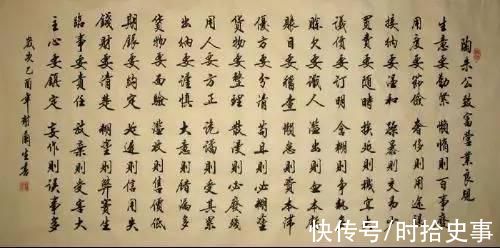 陶朱公致富營業良規
生意要勤緊 懶惰則百事廢
用度要節儉 奢侈則用途竭
接納要溫和 躁暴則交易少
買賣要隨時 挨延則機宜失
議價要訂明 含糊則爭執多
賒欠要識人 濫出則血本虧
賬目要稽查 懶怠則資本滯
優劣要分清 苟且則必糊塗
貨物要整理 散漫則必廢殘
用人要方正 詭譎則受其累
出納要謹慎 大意則錯漏多
貨物要面驗 濫放則售價低
期限要約定 延遲則信用失
錢財要清楚 糊塗則弊竇生
臨事要責任 放棄則受害
主心要鎮定 妄作則誤事多
歲次己酉年 生書
快传号/时拾史事